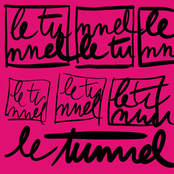 le tu nnel le
nnel le tu nnel
le tu le tu le tu
nnel nnel
le tunnel